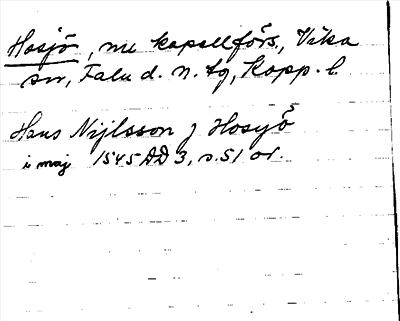 Hosjö, nu kapellförs., Vika
sn, Falu d. n. tg, Kopp. l.
Hans Nijlsson j Hosyö
i maj 1545 DD 3, s. 51 or.